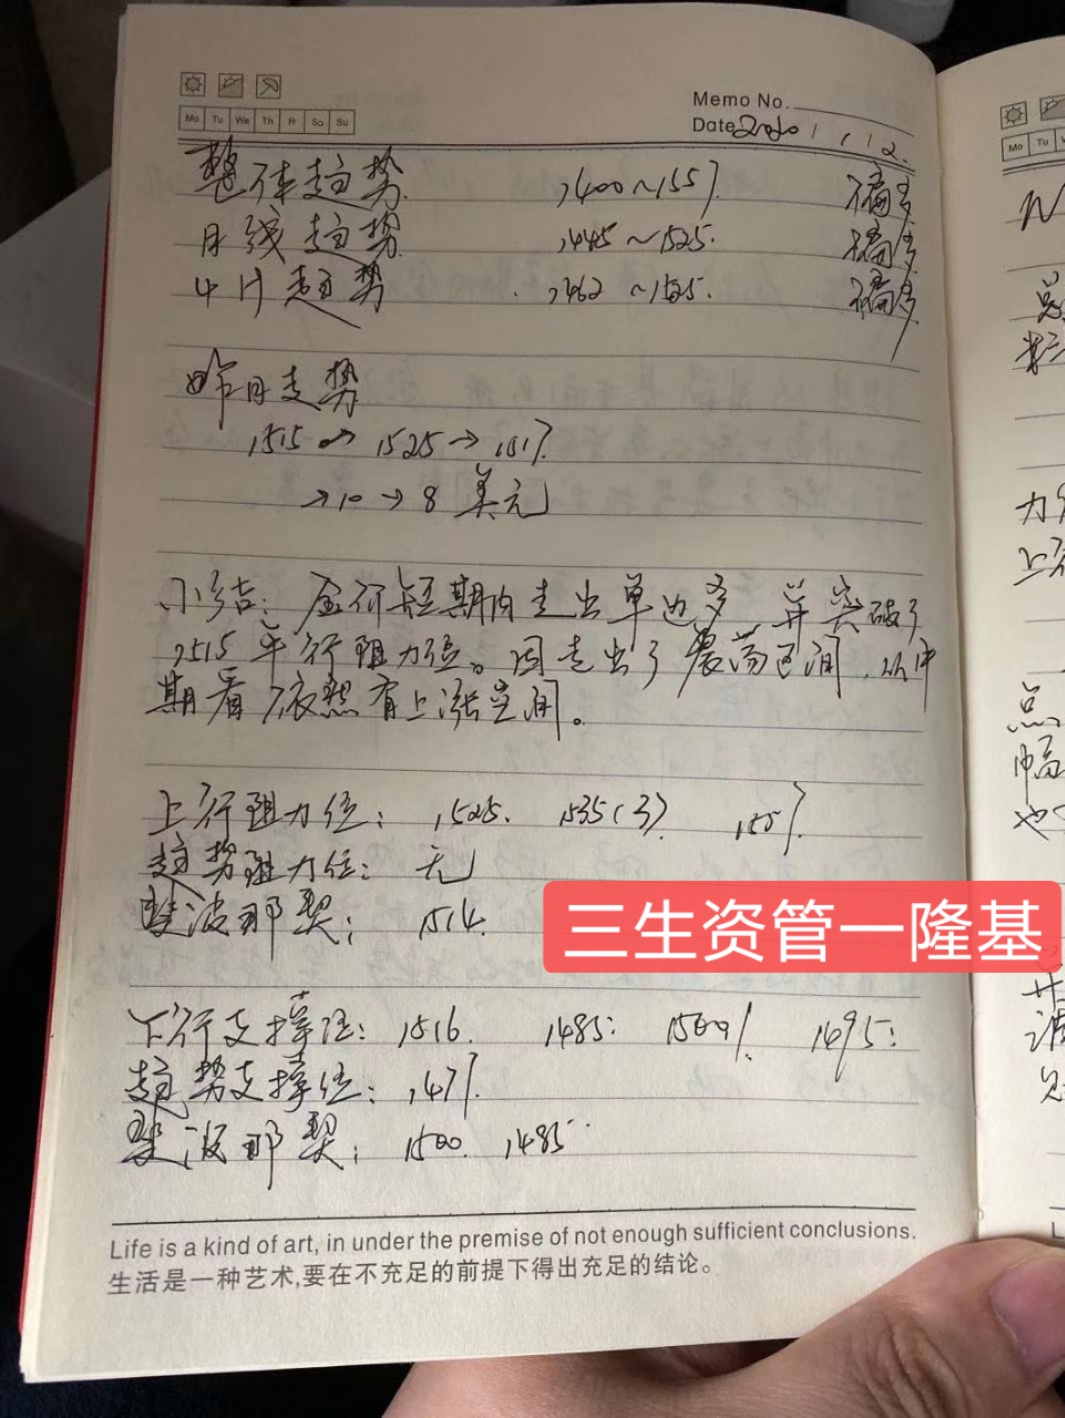 Memo No.
Mo Tu We Th Fr Sa Su
Date 2020 1 / 12.
整体趋势 1400~1557 偏多
月线趋势 1445~1525. 偏多
4H趋势 1462~1525. 偏多
昨日走势
1515 → 1525 → 1517.
→10→8美元
小结：金价短期内走出单边多 并突破了
1515平行阻力位。因走出了震荡区间，从中
期看 依然有上涨空间。
上行阻力位： 1525. 1535(3) 1557.
趋势阻力位：无
斐波那契： 1514.
三生资管一隆基
下行支撑位： 1516. 1485. 1495.
趋势支撑位： 1471.
斐波那契： 1500. 1485
Life is a kind of art, in under the premise of not enough sufficient conclusions.
生活是一种艺术,要在不充足的前提下得出充足的结论。